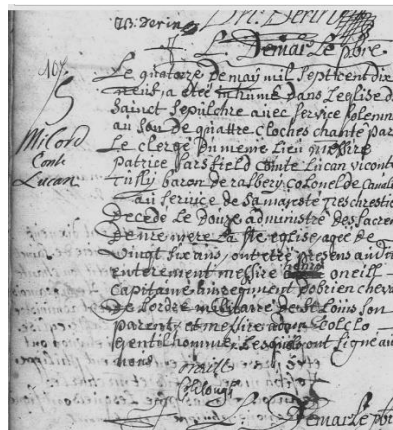 L. Demarle pbre
107
Milord
Cont
Lucan
Le quatorze de may mil sept cent dix
neuf a etté inhumé dans l'eglise d
sainct sepulchre avec service solemn
au son de quattre cloches chanté par
Le clergé du meme lieu messire
patrice sarsfield comte Lucan vicont
tully baron de rosbery colonel de cavale
au service de sa majesté treschrestie
decede Le douze administré des sacre
de n{re} mere La ste eglise agée de
vingt six ans, ont etté presens audi
enterement messire oneill
capitaine au regiment d'obrien cheva
de l'ordre militaire de st Loüis son
parent, et messire
gentilhomme, Lesquels ont signé au
nous
L. Demarle pbr